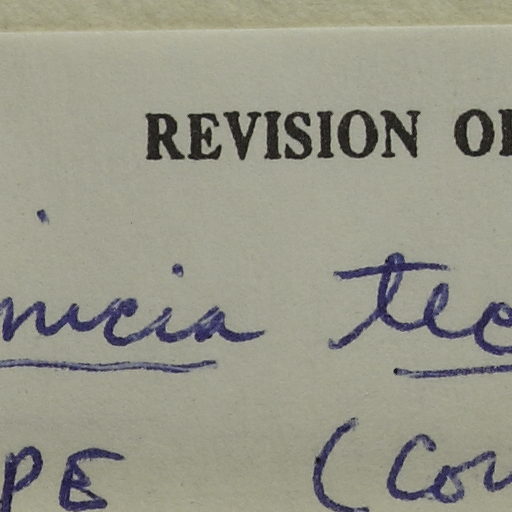 REVISION OF
nicia tec
PE (Cou